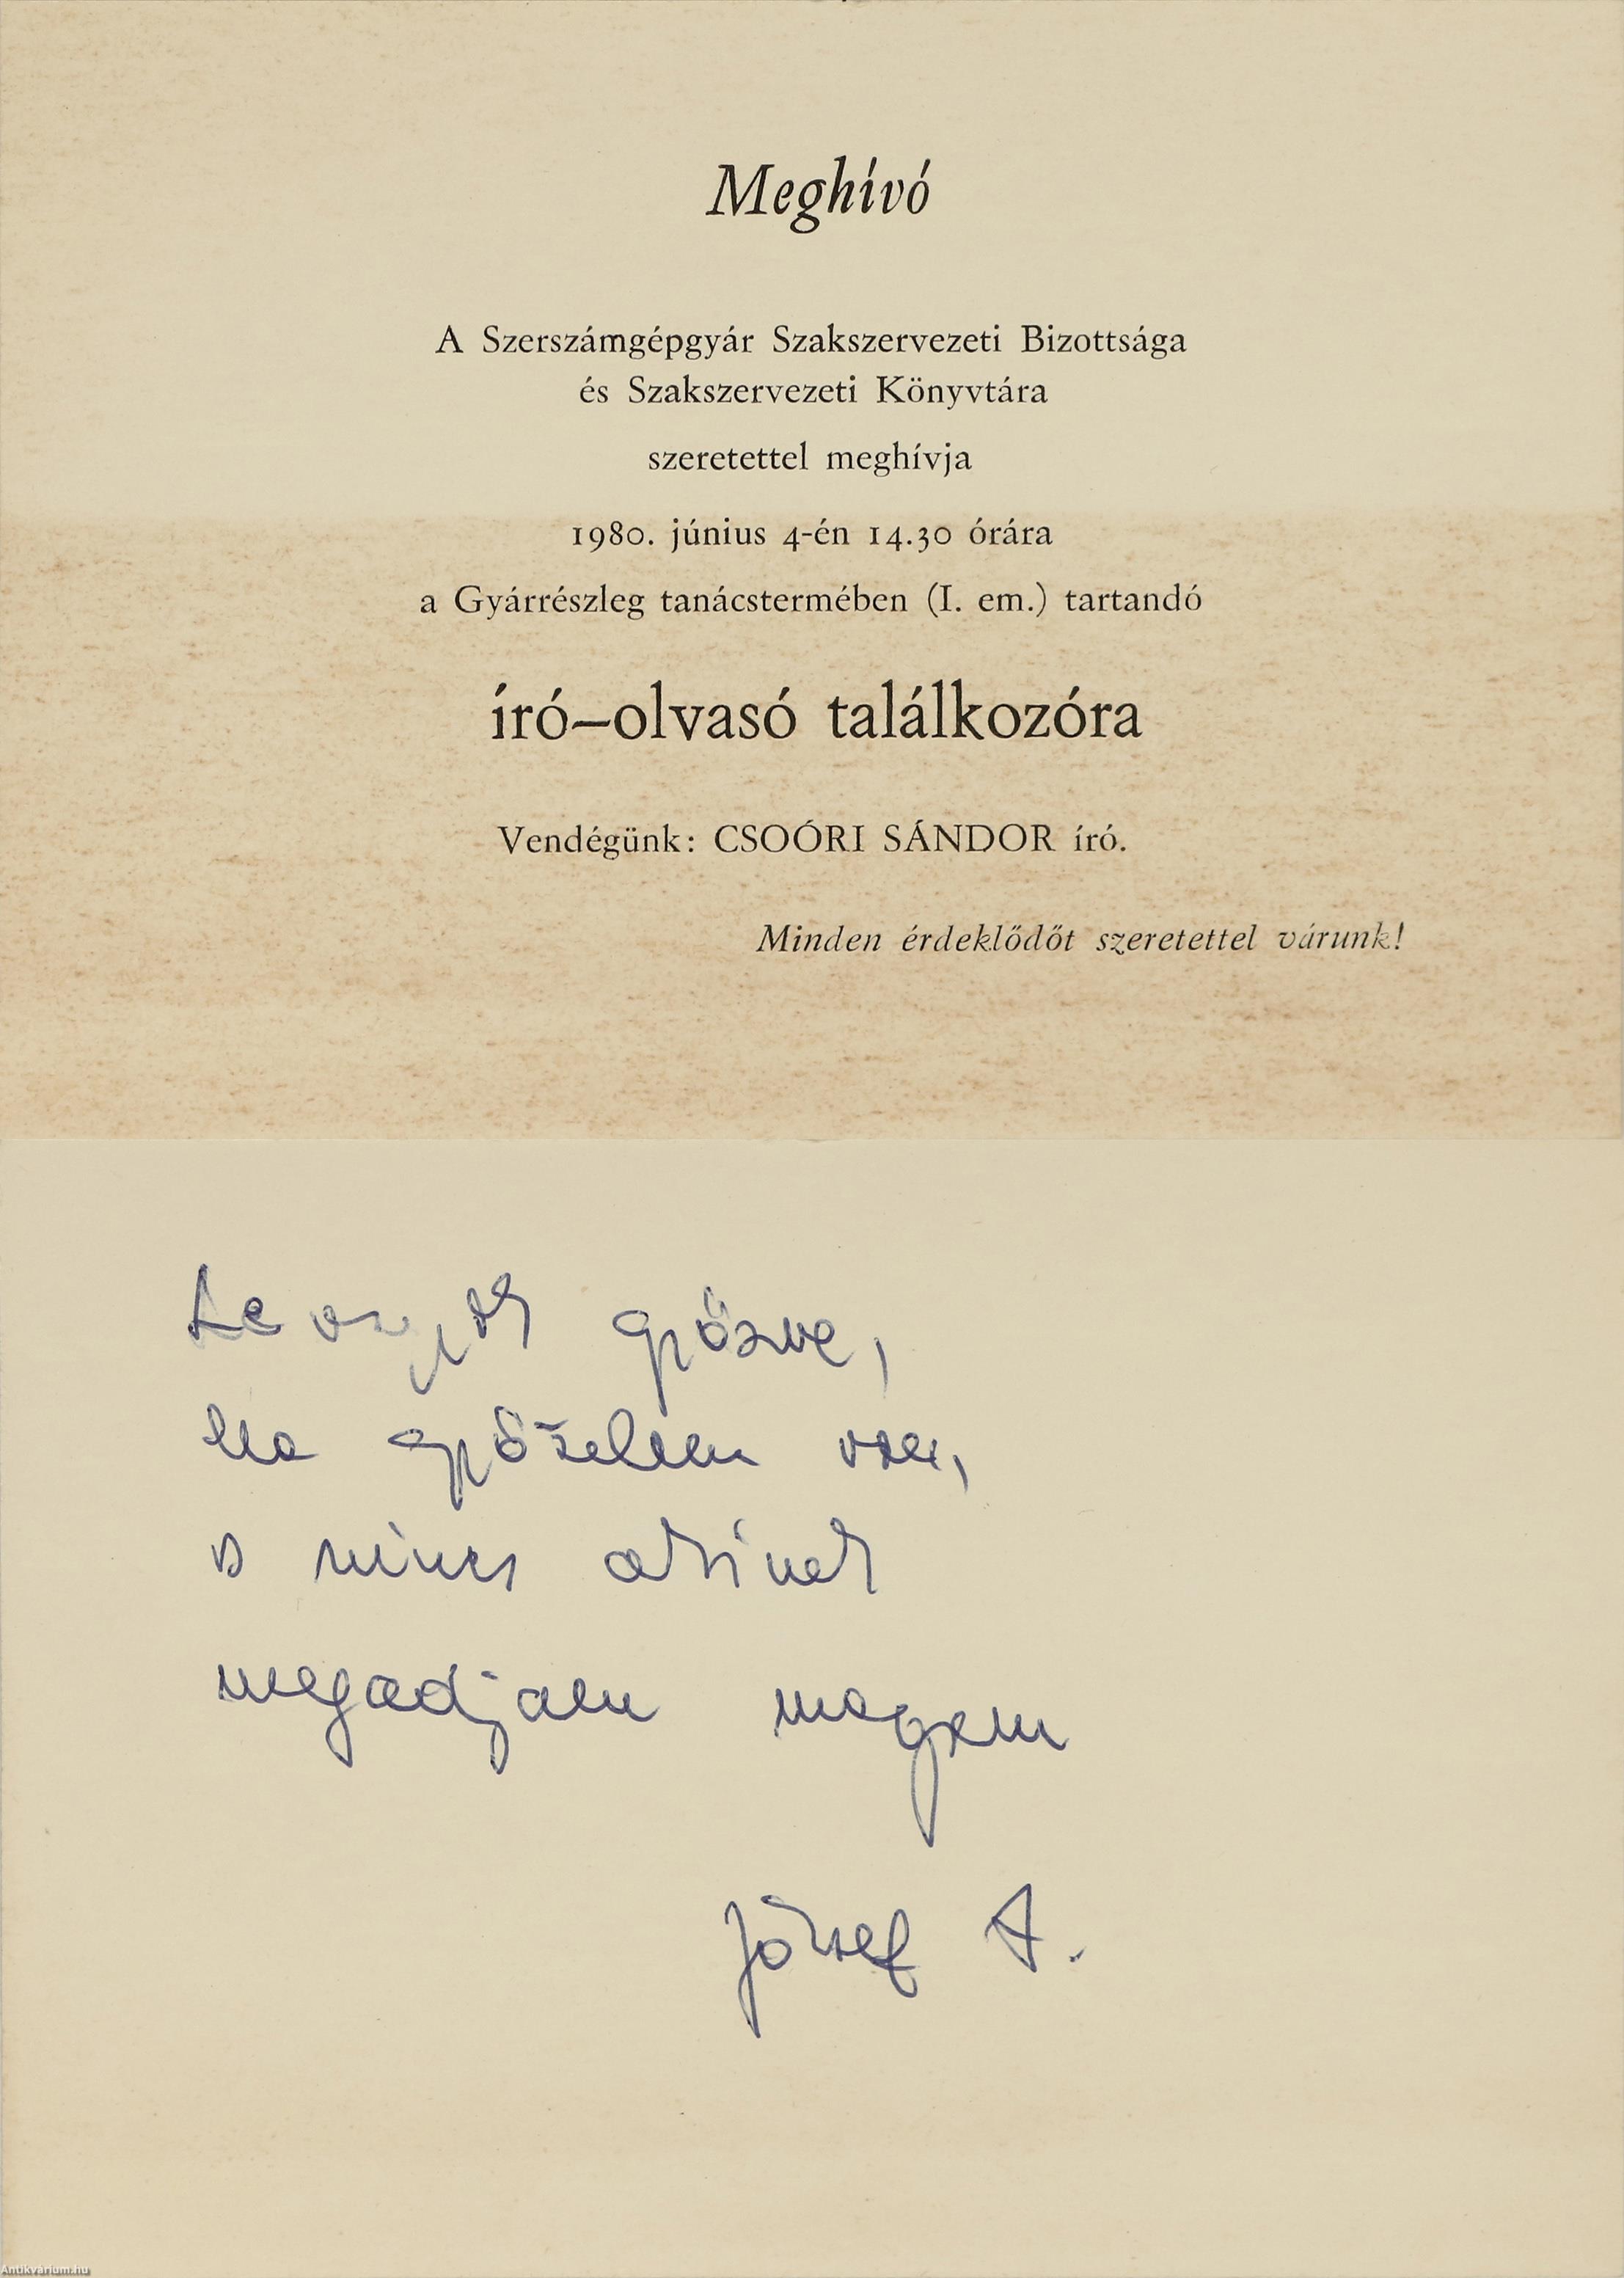 Meghívó
A Szerszámgépgyár Szakszervezeti Bizottsága
és Szakszervezeti Könyvtára
szeretettel meghívja
1980. június 4-én 14.30 órára
a Gyárrészleg tanácstermében (I. em.) tartandó
író–olvasó találkozóra
Vendégünk: CSOÓRI SÁNDOR író.
Minden érdeklődőt szeretettel várunk!
Le vagyok győzve,
ha győzelem van,
s nincs akinek
megadjam magam
József A.
Antikvárium.hu